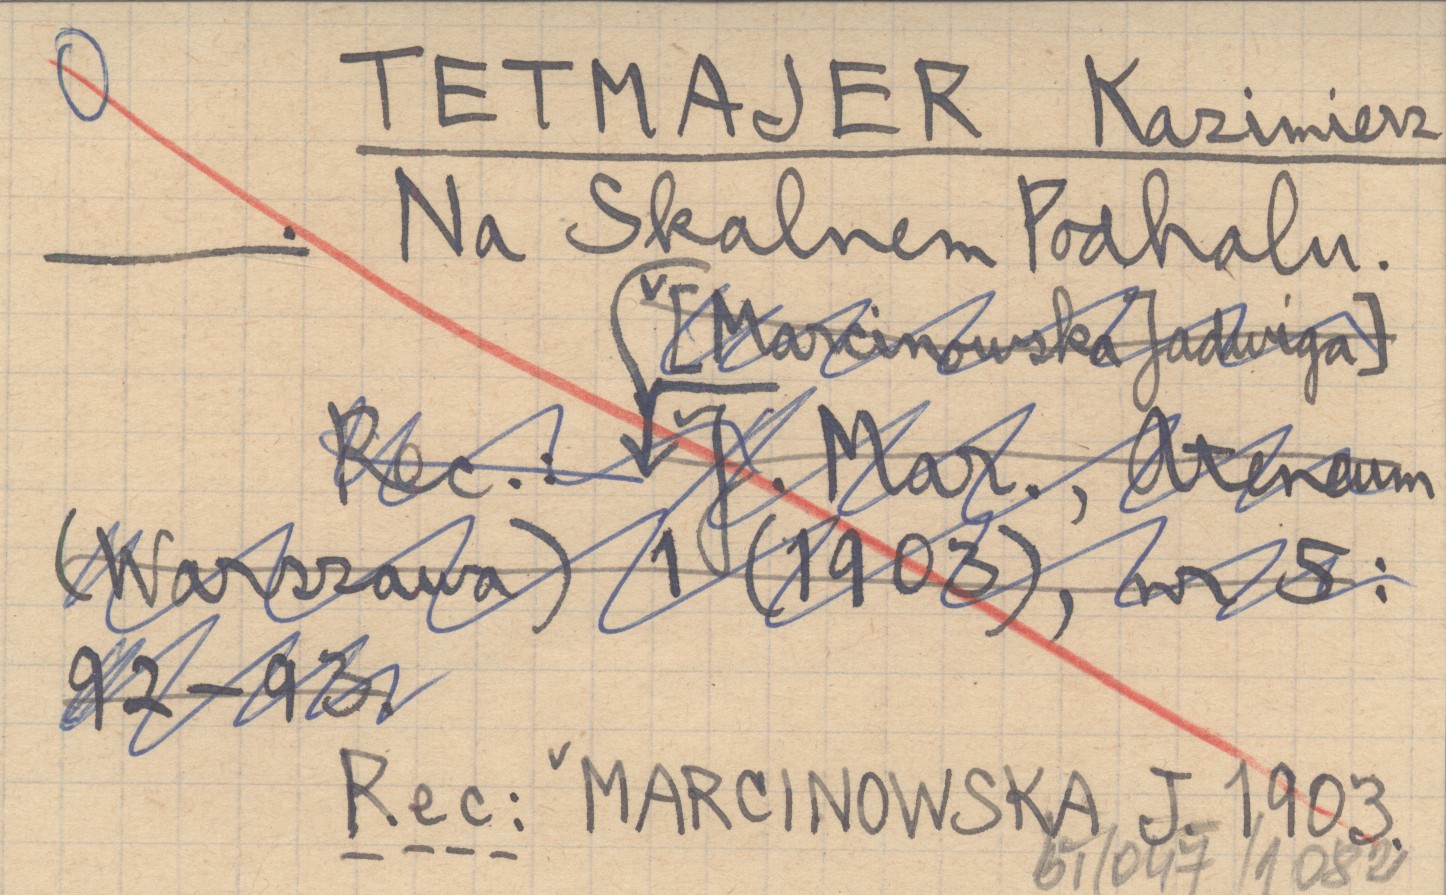 TETMAJER Kazimierz
. Na Skalnem Podhalu.
[Marcinowska Jadwiga]
Rec.: J. Mar., Ateneum
(Warszawa) 1 (1903), nr 5:
92-93.
Rec: MARCINOWSKA J. 1903.
/047/1082